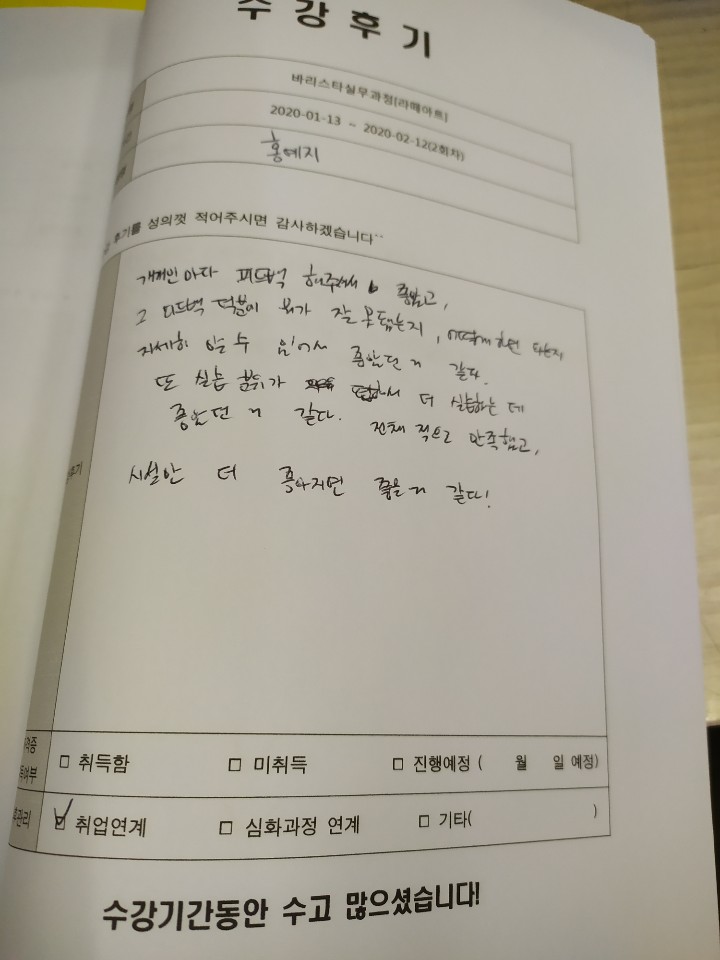 수 강 후 기
바리스타실무과정[라떼아트]
2020-01-13 ~ 2020-02-12(2회차)
홍예지
후기를 성의껏 적어주시면 감사하겠습니다~
개개인 마다 피드백 해주셔서 좋았고,
그 피드백 덕분에 뭐가 잘 못됐는지, 어떻게 하면 되는지
자세히 알 수 있어서 좋았던 거 같다.
또 실습 분위기가 편해서 더 실습하는 데
좋았던 거 같다. 전체적으로 만족했고,
시설만 더 좋아지면 좋을거 같다!
후기
격증
득여부
□ 취득함 □ 미취득 □ 진행예정 ( 월 일 예정)
후관리
☑ 취업연계 □ 심화과정 연계 □ 기타( )
수강기간동안 수고 많으셨습니다!